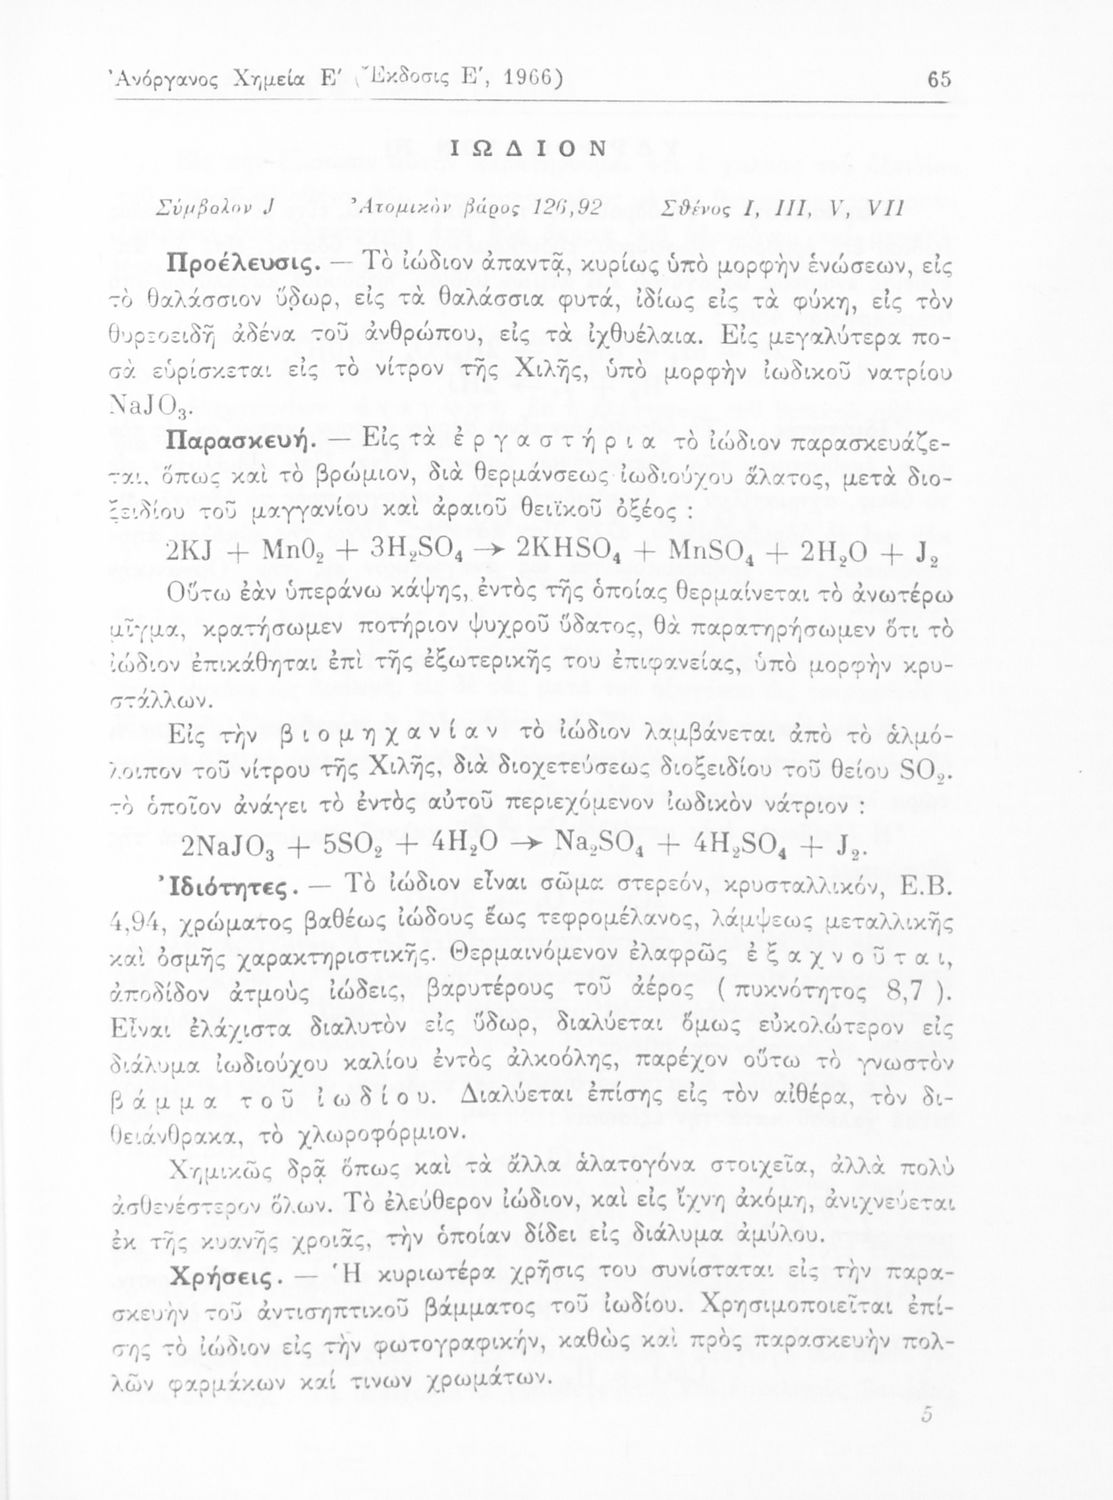 Ἀνόργανος Χημεία Ε′ (Ἔκδοσις Ε′, 1966) 65
ΙΩΔΙΟΝ
Σύμβολον J Ἀτομικὸν βάρος 126,92 Σθένος I, III, V, VII
Προέλευσις. — Τὸ ἰώδιον ἀπαντᾷ, κυρίως ὑπὸ μορφὴν ἑνώσεων, εἰς
τὸ θαλάσσιον ὕδωρ, εἰς τὰ θαλάσσια φυτά, ἰδίως εἰς τὰ φύκη, εἰς τὸν
θυρεοειδῆ ἀδένα τοῦ ἀνθρώπου, εἰς τὰ ἰχθυέλαια. Εἰς μεγαλύτερα πο-
σὰ εὑρίσκεται εἰς τὸ νίτρον τῆς Χιλῆς, ὑπὸ μορφὴν ἰωδικοῦ νατρίου
NaJO₃.
Παρασκευή. — Εἰς τὰ ἐργαστήρια τὸ ἰώδιον παρασκευάζε-
ται, ὅπως καὶ τὸ βρώμιον, διὰ θερμάνσεως ἰωδιούχου ἅλατος, μετὰ διο-
ξειδίου τοῦ μαγγανίου καὶ ἀραιοῦ θειϊκοῦ ὀξέος :
2KJ + MnO₂ + 3H₂SO₄ → 2KHSO₄ + MnSO₄ + 2H₂O + J₂
Οὕτω ἐὰν ὑπεράνω κάψης, ἐντὸς τῆς ὁποίας θερμαίνεται τὸ ἀνωτέρω
μῖγμα, κρατήσωμεν ποτήριον ψυχροῦ ὕδατος, θὰ παρατηρήσωμεν ὅτι τὸ
ἰώδιον ἐπικάθηται ἐπὶ τῆς ἐξωτερικῆς του ἐπιφανείας, ὑπὸ μορφὴν κρυ-
στάλλων.
Εἰς τὴν βιομηχανίαν τὸ ἰώδιον λαμβάνεται ἀπὸ τὸ ἁλμό-
λοιπον τοῦ νίτρου τῆς Χιλῆς, διὰ διοχετεύσεως διοξειδίου τοῦ θείου SO₂.
τὸ ὁποῖον ἀνάγει τὸ ἐντὸς αὐτοῦ περιεχόμενον ἰωδικὸν νάτριον :
2NaJO₃ + 5SO₂ + 4H₂O → Na₂SO₄ + 4H₂SO₄ + J₂.
Ἰδιότητες. — Τὸ ἰώδιον εἶναι σῶμα στερεόν, κρυσταλλικόν, Ε.Β.
4,94, χρώματος βαθέως ἰώδους ἕως τεφρομέλανος, λάμψεως μεταλλικῆς
καὶ ὀσμῆς χαρακτηριστικῆς. Θερμαινόμενον ἐλαφρῶς ἐξαχνοῦται,
ἀποδίδον ἀτμοὺς ἰώδεις, βαρυτέρους τοῦ ἀέρος ( πυκνότητος 8,7 ).
Εἶναι ἐλάχιστα διαλυτὸν εἰς ὕδωρ, διαλύεται ὅμως εὐκολώτερον εἰς
διάλυμα ἰωδιούχου καλίου ἐντὸς ἀλκοόλης, παρέχον οὕτω τὸ γνωστὸν
βάμμα τοῦ ἰωδίου. Διαλύεται ἐπίσης εἰς τὸν αἰθέρα, τὸν δι-
θειάνθρακα, τὸ χλωροφόρμιον.
Χημικῶς δρᾷ ὅπως καὶ τὰ ἄλλα ἁλατογόνα στοιχεῖα, ἀλλὰ πολὺ
ἀσθενέστερον ὅλων. Τὸ ἐλεύθερον ἰώδιον, καὶ εἰς ἴχνη ἀκόμη, ἀνιχνεύεται
ἐκ τῆς κυανῆς χροιᾶς, τὴν ὁποίαν δίδει εἰς διάλυμα ἀμύλου.
Χρήσεις. — Ἡ κυριωτέρα χρῆσις του συνίσταται εἰς τὴν παρα-
σκευὴν τοῦ ἀντισηπτικοῦ βάμματος τοῦ ἰωδίου. Χρησιμοποιεῖται ἐπί-
σης τὸ ἰώδιον εἰς τὴν φωτογραφικήν, καθὼς καὶ πρὸς παρασκευὴν πολ-
λῶν φαρμάκων καί τινων χρωμάτων.
5